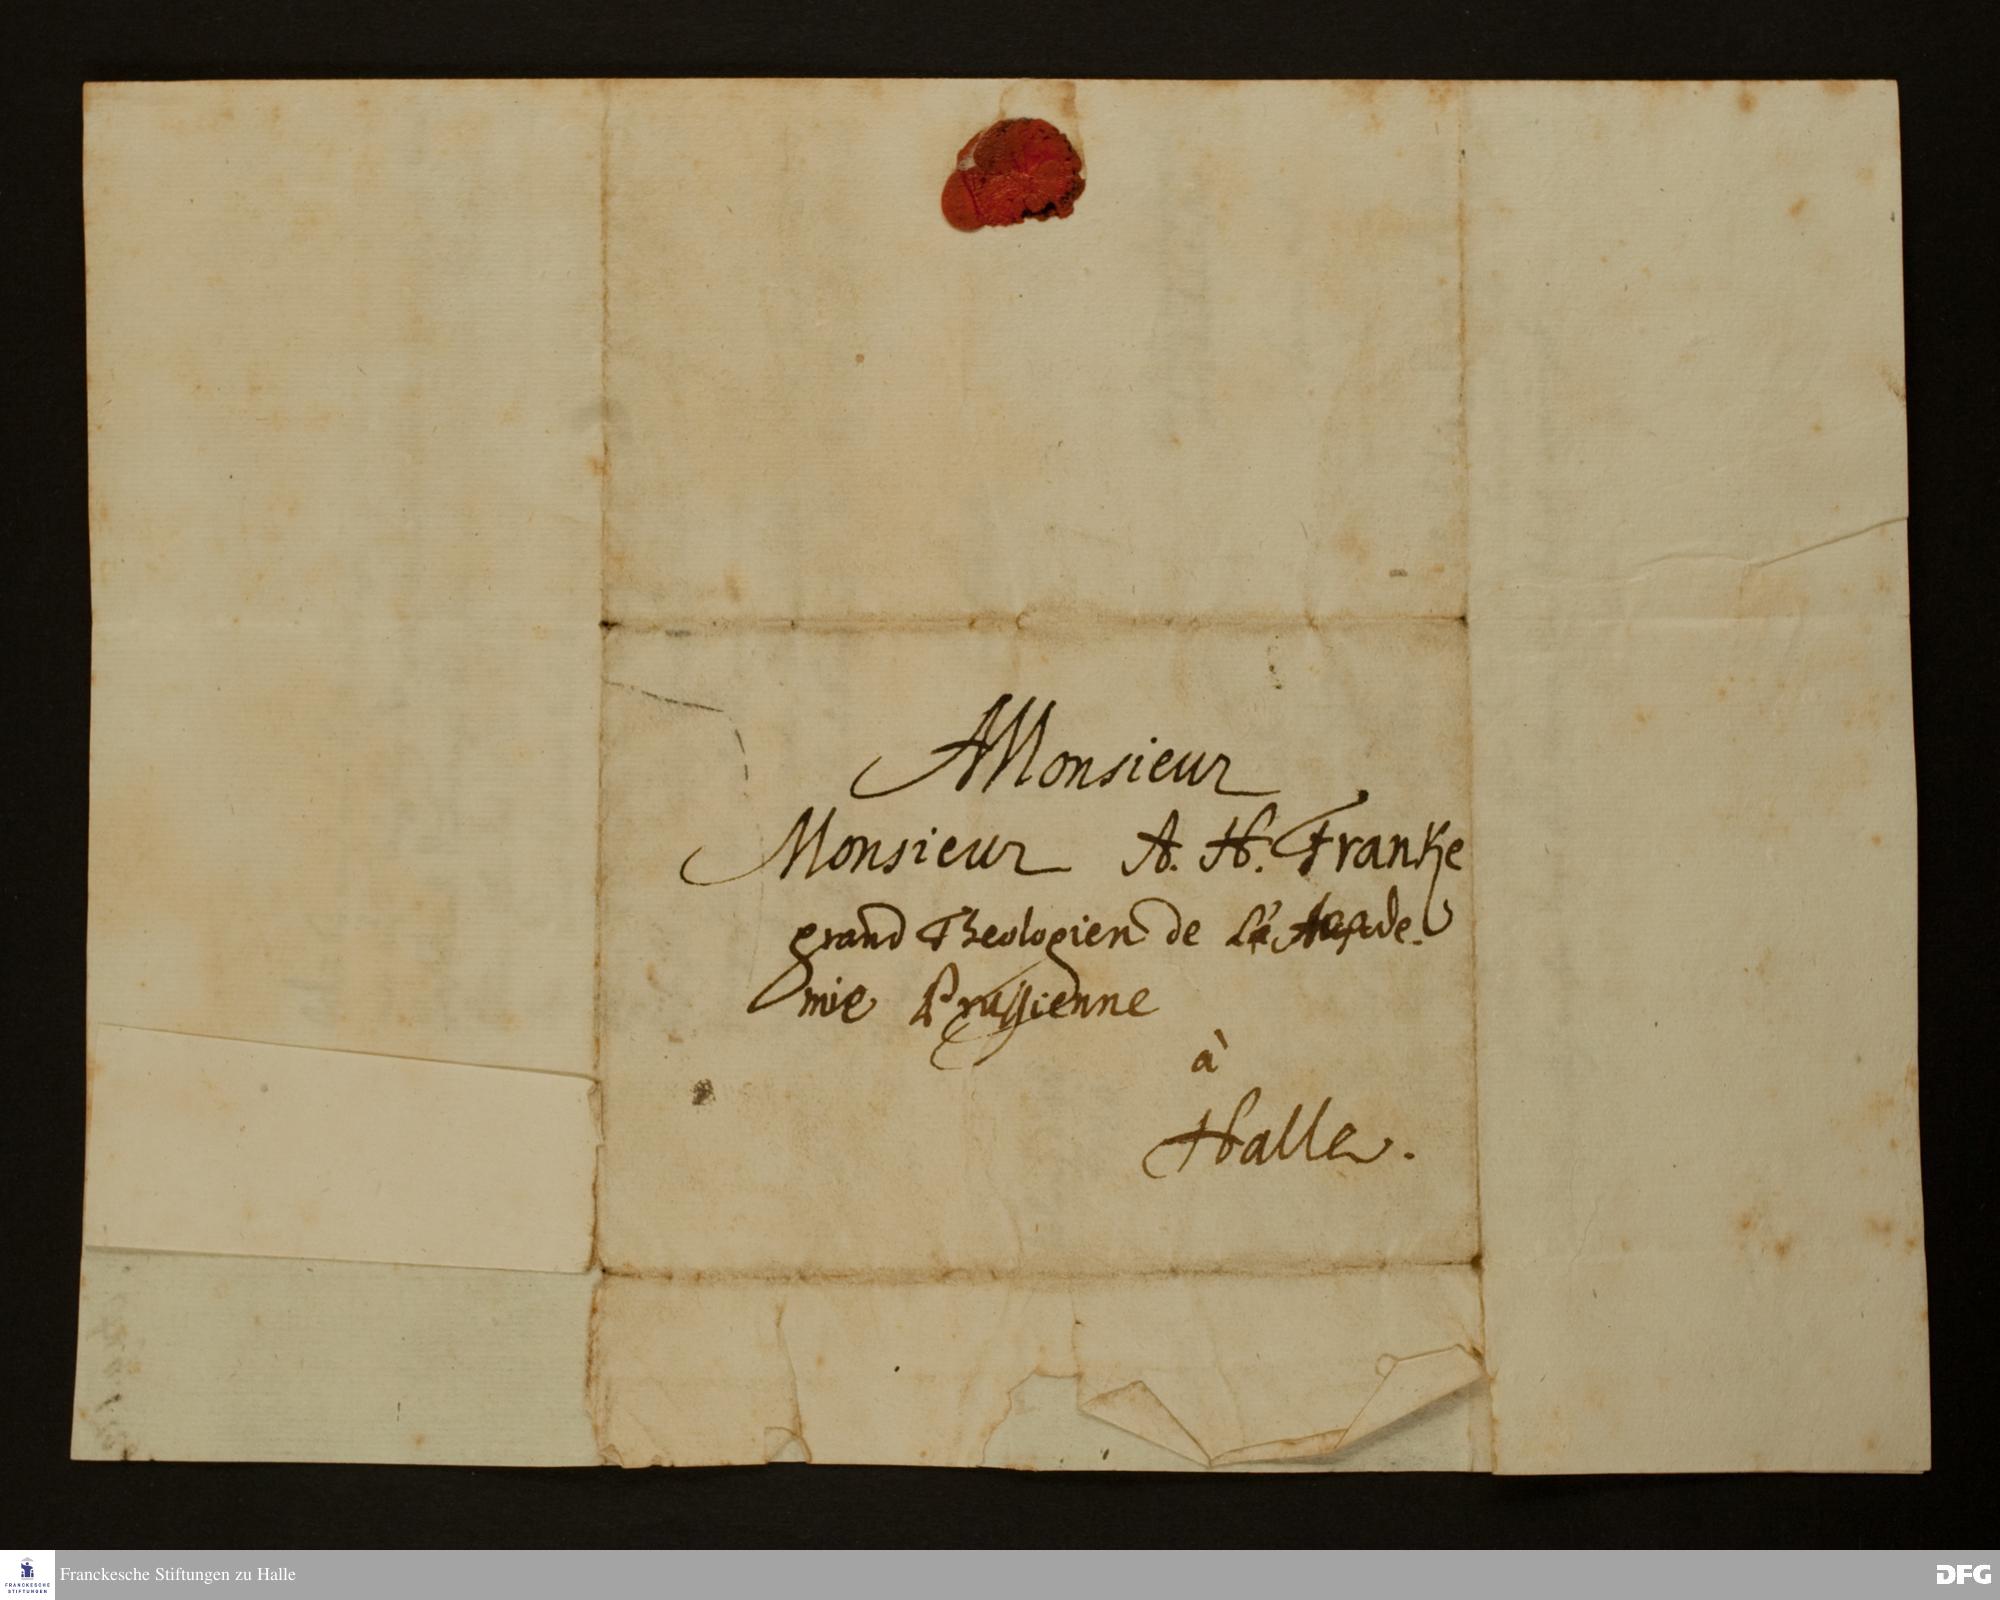 A Monsieur
Monsieur A. H. Franke
grand Theologien de L'Acade-
mie Prussienne
à
Halle.
FRANCKESCHE
STIFTUNGEN
Franckesche Stiftungen zu Halle
DFG